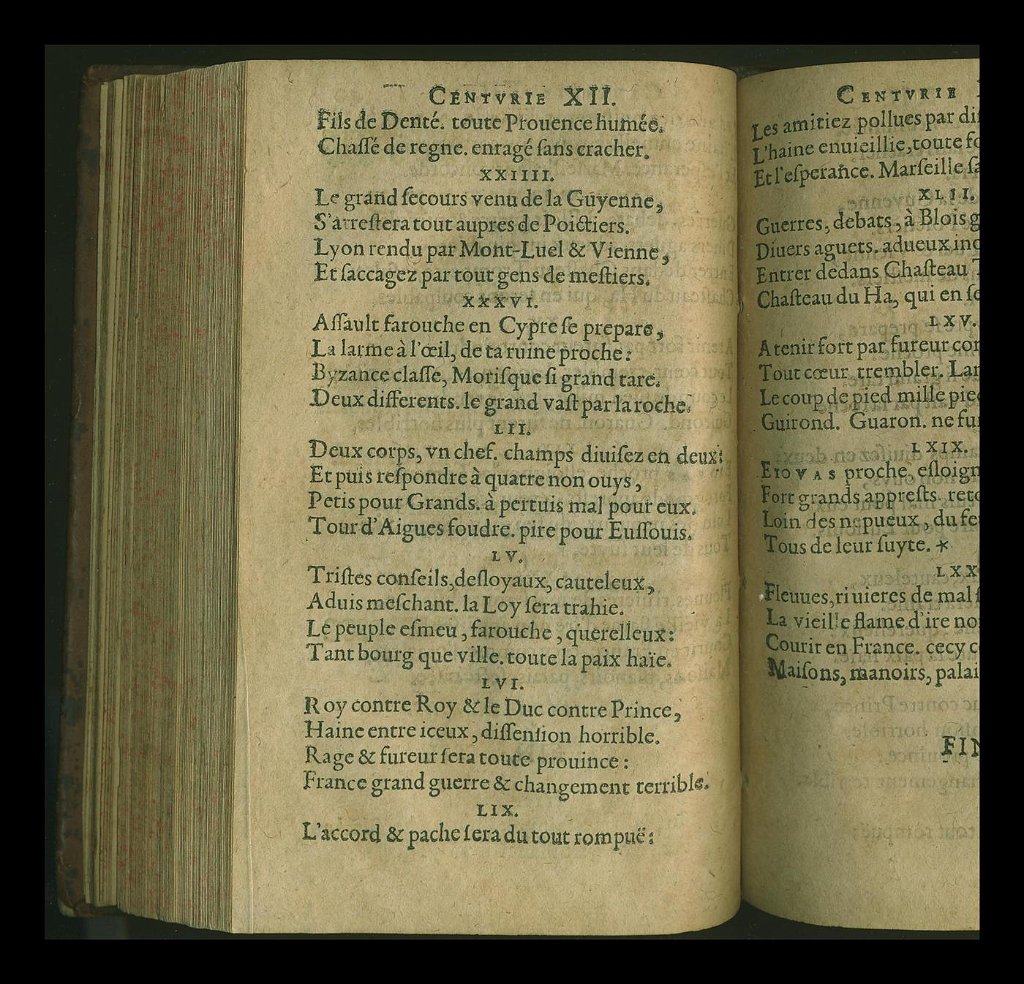 CENTVRIE XII.
Fils de Denté. toute Prouence humée.
Chaſſé de regne. enragé ſans cracher.
XXIIII.
Le grand ſecours venu de la Guyenne,
S'arreſtera tout aupres de Poictiers.
Lyon rendu par Mont-Luel & Vienne,
Et ſaccagez par tout gens de meſtiers.
XXXVI.
Aſſault farouche en Cypre ſe prepare,
La larme à l'œil, de ta ruine proche:
Byzance claſſe, Moriſque ſi grand tare.
Deux differents. le grand vaſt par la roche.
LII.
Deux corps, vn chef. champs diuiſez en deux:
Et puis reſpondre à quatre non ouys,
Petis pour Grands. à pertuis mal pour eux.
Tour d'Aigues foudre. pire pour Euſſouis.
LV.
Triſtes conſeils, desloyaux, cauteleux,
Aduis meſchant. la Loy ſera trahie.
Le peuple eſmeu, farouche, querelleux:
Tant bourg que ville. toute la paix haïe.
LVI.
Roy contre Roy & le Duc contre Prince,
Haine entre iceux, diſſenſion horrible.
Rage & fureur ſera toute prouince:
France grand guerre & changement terrible.
LIX.
L'accord & pache ſera du tout rompuë:
CENTVRIE
Les amitiez pollues par di
L'haine enuieillie, toute fo
Et l'eſperance. Marſeille ſa
XLII.
Guerres, debats, à Blois g
Diuers aguets. adueux ino
Entrer dedans Chaſteau T
Chaſteau du Ha, qui en ſe
LXV.
A tenir fort par fureur con
Tout cœur trembler. Lan
Le coup de pied mille pied
Guirond. Guaron. ne fur
LXIX.
EIOVAS proche, eſloign
Fort grands appreſts. reto
Loin des nepueux, du fe
Tous de leur ſuyte. *
LXX
Fleuues, riuieres de mal ſ
La vieille flame d'ire no
Courir en France. cecy c
Maiſons, manoirs, palai
FIN